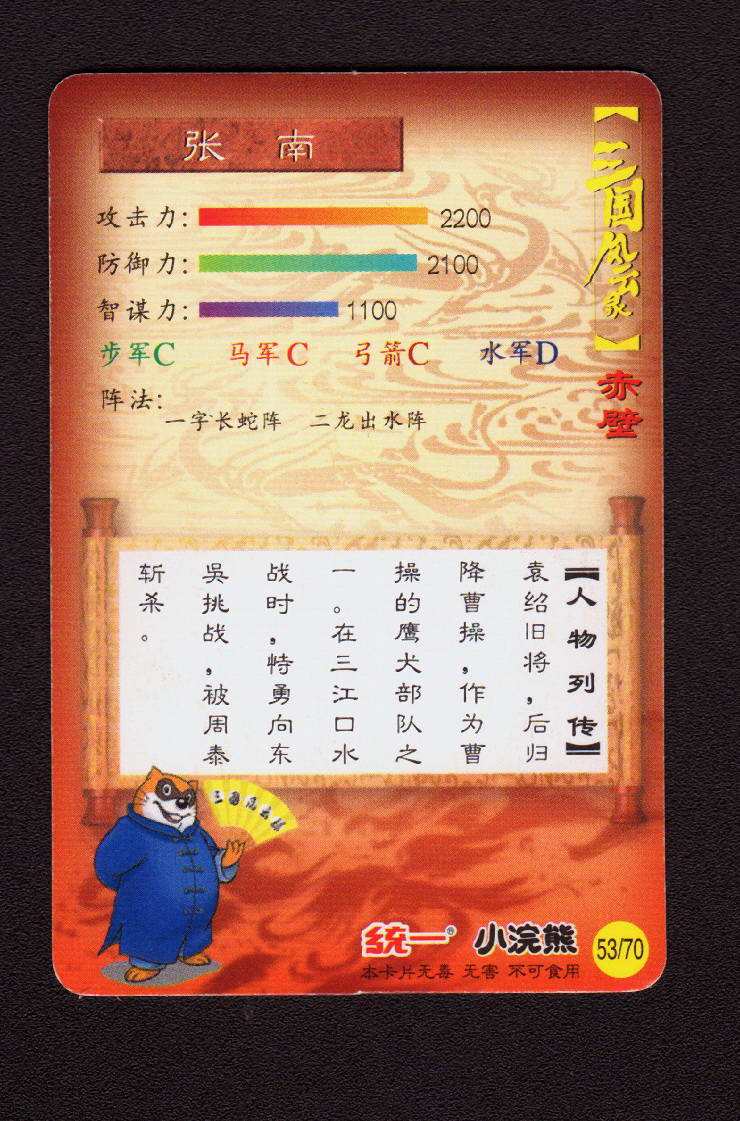 张 南
【三国风云录】
赤壁
攻击力：2200
防御力：2100
智谋力：1100
步军C 马军C 弓箭C 水军D
阵法：
一字长蛇阵 二龙出水阵
【人物列传】
袁绍旧将，后归
降曹操，作为曹
操的鹰犬部队之
一。在三江口水
战时，恃勇向东
吴挑战，被周泰
斩杀。
三国风云录
统一® 小浣熊
本卡片无毒 无害 不可食用
53/70